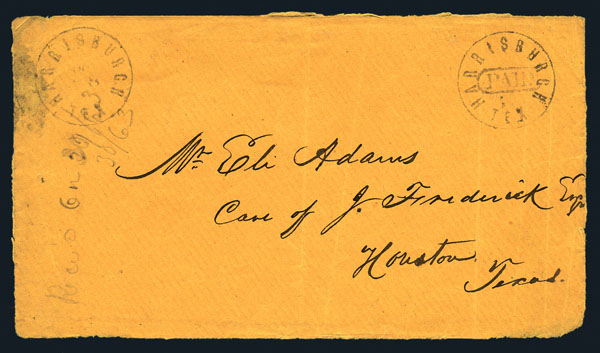 HARRISBURGH
HARRISBURGH
PAID
TEX
Mr. Eli Adams
Care of J. Frederick Esq
Houston
Texas.
Rec'd